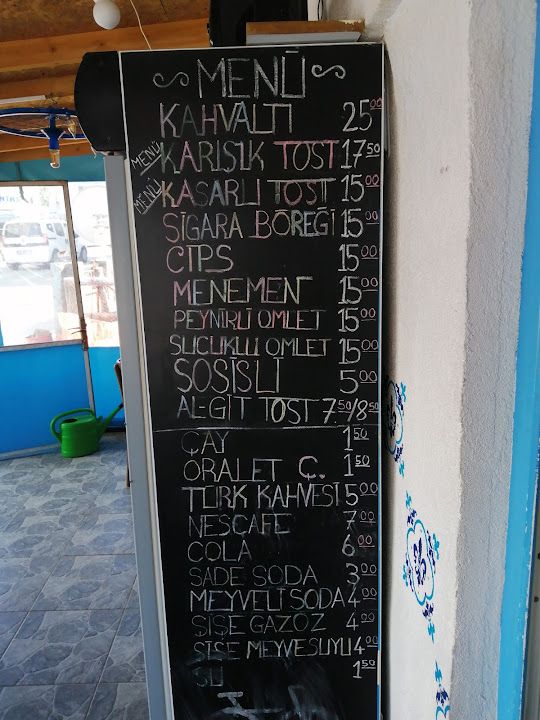 MENÜ
KAHVALTI 25.00
MENÜ KARIŞIK TOST 17.50
MENÜ KAŞARLI TOST 15.00
SİGARA BÖREĞİ 15.00
CİPS 15.00
MENEMEN 15.00
PEYNİRLİ OMLET 15.00
SUCUKLU OMLET 15.00
SOSİSLİ 5.00
AL-GİT TOST 7.50/8.50
ÇAY 1.50
ORALET Ç. 1.50
TÜRK KAHVESİ 5.00
NESCAFE 7.00
COLA 6.00
SADE SODA 3.00
MEYVELİ SODA 4.00
ŞİŞE GAZOZ 4.00
ŞİŞE MEYVE SUYU 4.00
SU 1.50